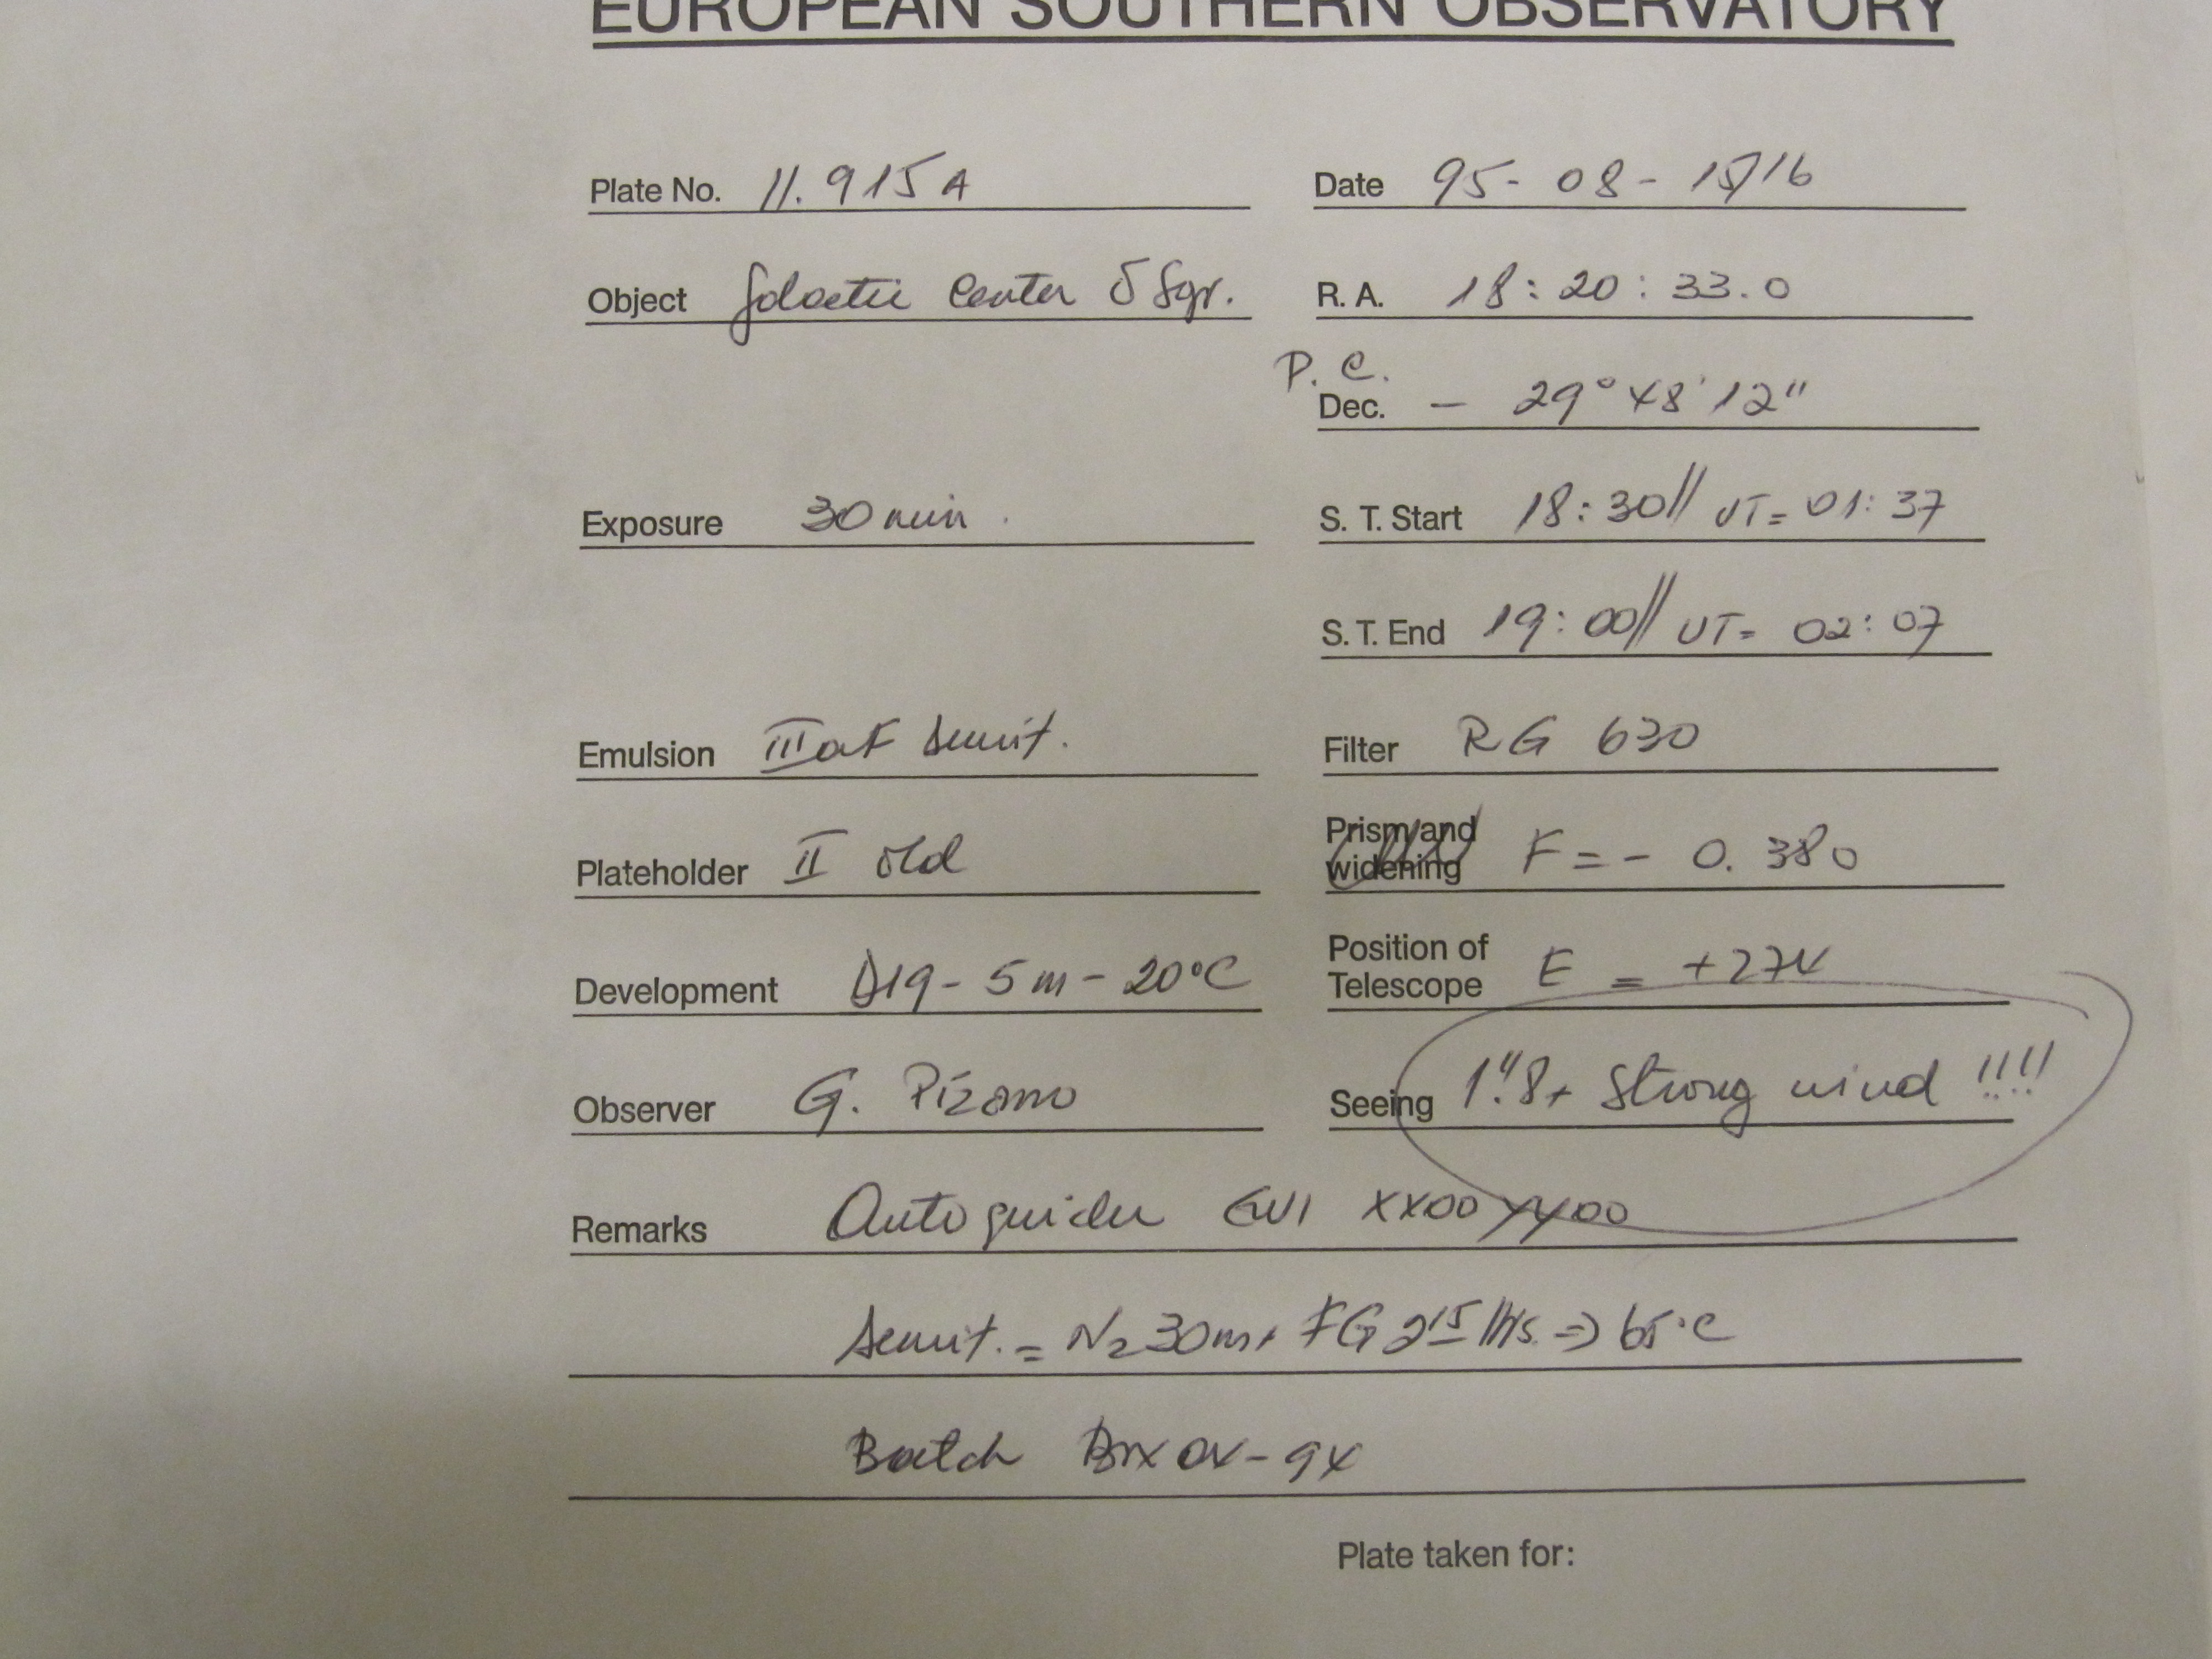 EUROPEAN SOUTHERN OBSERVATORY
Plate No. 11.915A
Date 95-08-15/16
Object Galactic Center δ Sgr.
R. A. 18:20:33.0
P. C.
Dec. - 29° 48' 12"
Exposure 30 min.
S. T. Start 18:30// UT= 01:37
S. T. End 19:00// UT= 02:07
Emulsion IIIaF sensit.
Filter RG 630
Plateholder II old
Prism and widening F = - 0.380
Development D19 - 5m - 20°C
Position of Telescope E = +274
Observer G. Pizarro
Seeing 1."8 + Strong wind !!!!
Remarks Autoguider GV1 XX00 YY00
Sensit. = N2 30m + FG 2 15 Hrs. => 65°C
Batch
Plate taken for: